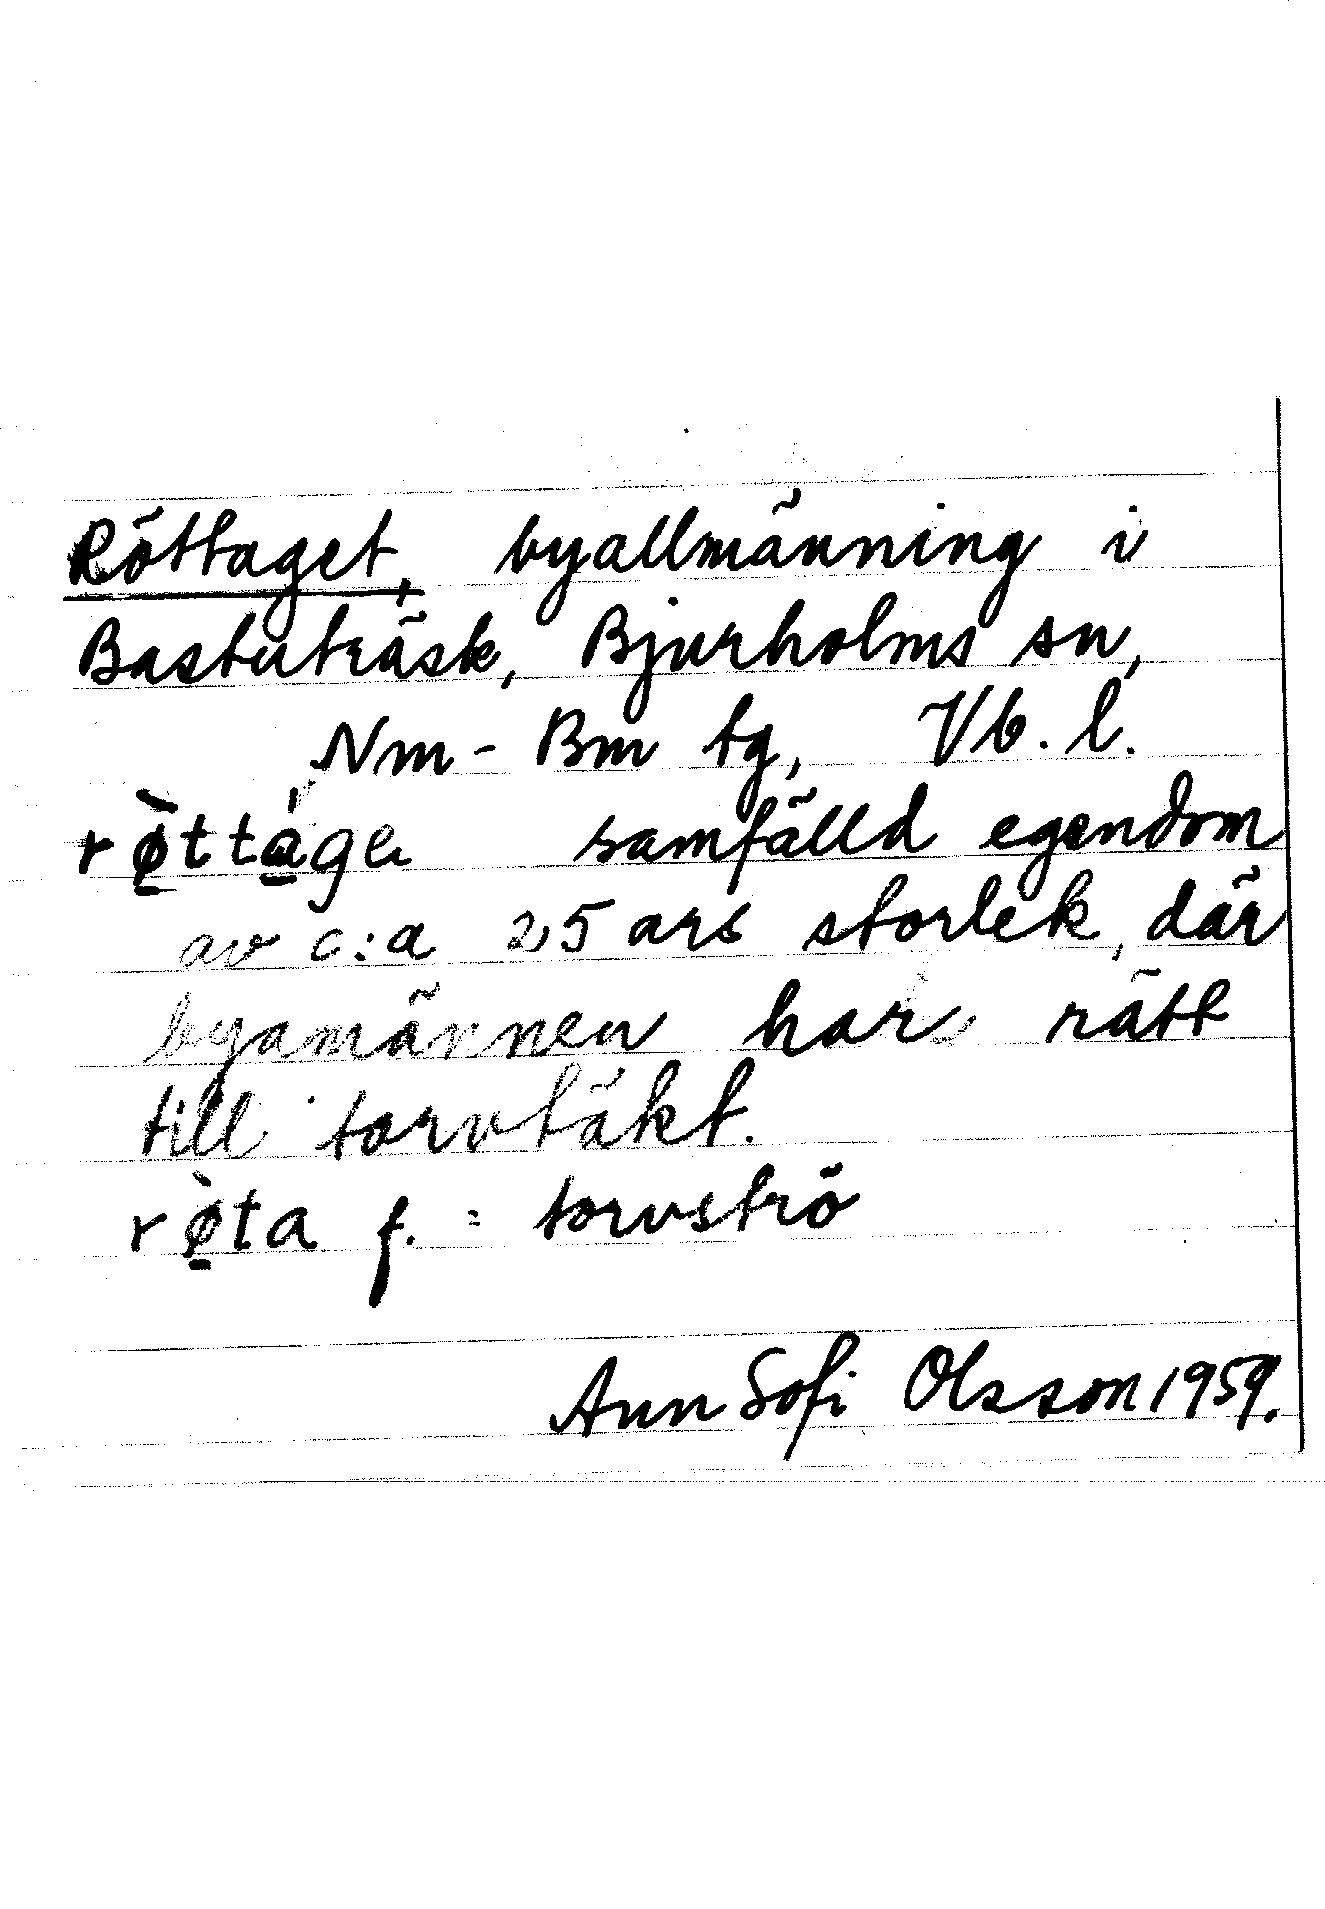 Röttaget, byallmänning i
Bastuträsk, Bjurholms sn,
Nm - Bm tg, Vb. l.
rø̱̀tta̱̍ge samfälld egendom
av c:a 25 ars storlek, där
byamännen har rätt
till torvtäkt.
rø̱̀ta f. = torvströ
Ann Sofi Olsson 1959.